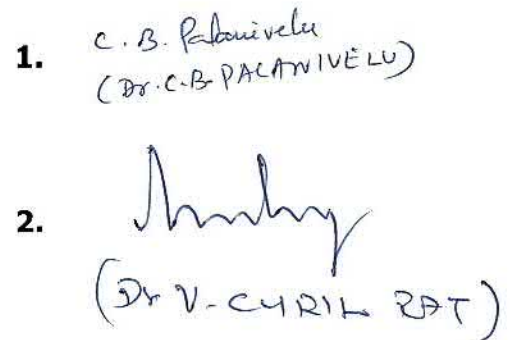 1. C. B. Palanivelu
(Dr. C. B. PALANIVELU)
2.
(Dr V. CYRIL RAJ)